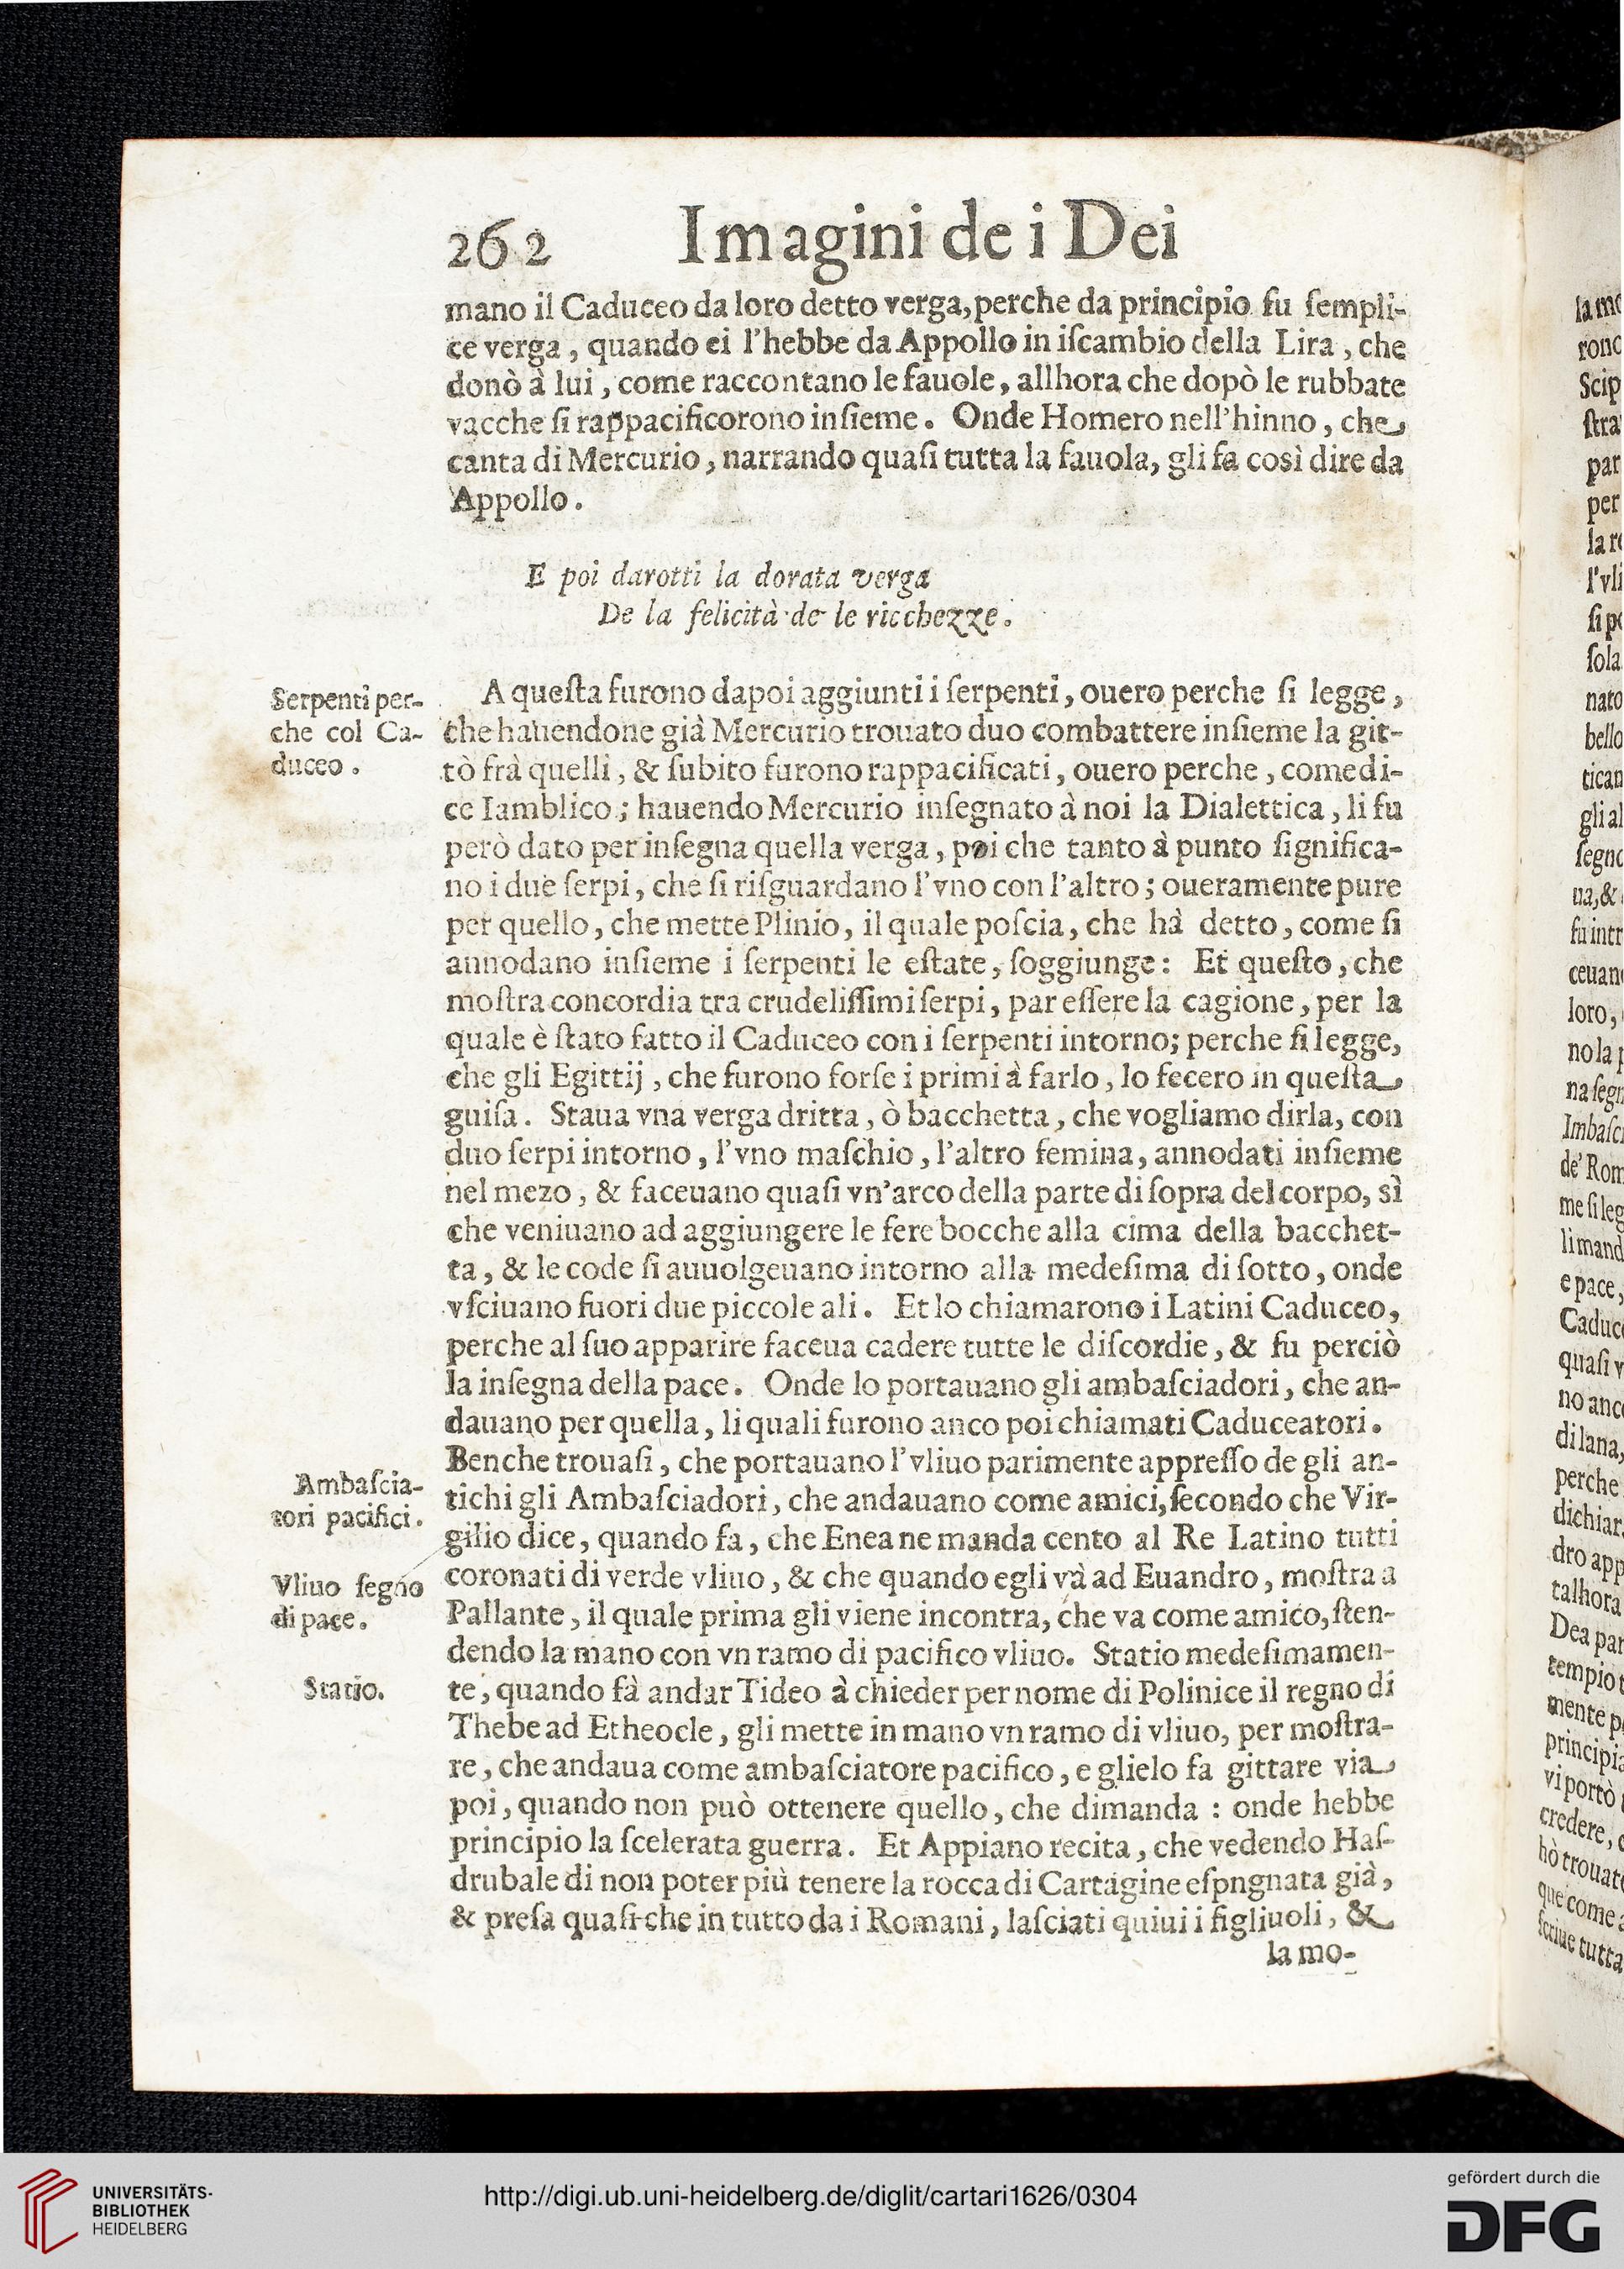 262 Imagini de i Dei
mano il Caduceo da loro detto verga, perche da principio fu ſempli-
ce verga, quando ei l'hebbe da Appollo in iſcambio della Lira, che
donò à lui, come raccontano le fauole, allhora che dopò le rubbate
vacche ſi rappacificorono inſieme. Onde Homero nell'hinno, che
canta di Mercurio, narrando quaſi tutta la fauola, gli fa così dire da
Appollo.
E poi darotti la dorata verga
De la felicità de le ricchezze.
Serpenti per-
che col Ca-
duceo.
A queſta furono dapoi aggiunti i ſerpenti, ouero perche ſi legge,
che hauendone già Mercurio trouato duo combattere inſieme la git-
tò frà quelli, & ſubito furono rappacificati, ouero perche, come di-
ce Iamblico; hauendo Mercurio inſegnato à noi la Dialettica, li fu
però dato per inſegna quella verga, poi che tanto à punto ſignifica-
no i due ſerpi, che ſi riſguardano l'vno con l'altro; oueramente pure
per quello, che mette Plinio, il quale poſcia, che hà detto, come ſi
annodano inſieme i ſerpenti le eſtate, ſoggiunge: Et queſto, che
moſtra concordia tra crudeliſſimi ſerpi, par eſſere la cagione, per la
quale è ſtato fatto il Caduceo con i ſerpenti intorno; perche ſi legge,
che gli Egittij, che furono forſe i primi à farlo, lo fecero in queſta
guiſa. Staua vna verga dritta, ò bacchetta, che vogliamo dirla, con
duo ſerpi intorno, l'vno maſchio, l'altro femina, annodati inſieme
nel mezo, & faceuano quaſi vn'arco della parte di ſopra del corpo, sì
che veniuano ad aggiungere le fere bocche alla cima della bacchet-
ta, & le code ſi auuolgeuano intorno alla medeſima di ſotto, onde
vſciuano fuori due piccole ali. Et lo chiamarono i Latini Caduceo,
perche al ſuo apparire faceua cadere tutte le diſcordie, & fu perciò
la inſegna della pace. Onde lo portauano gli ambaſciadori, che an-
dauano per quella, li quali furono anco poi chiamati Caduceatori.
Benche trouaſi, che portauano l'vliuo parimente appreſſo de gli an-
Ambaſcia-
tori pacifici.
tichi gli Ambaſciadori, che andauano come amici, ſecondo che Vir-
gilio dice, quando fa, che Enea ne manda cento al Re Latino tutti
Vliuo ſegno
di pace.
coronati di verde vliuo, & che quando egli và ad Euandro, moſtra a
Pallante, il quale prima gli viene incontra, che va come amico, ſten-
dendo la mano con vn ramo di pacifico vliuo. Statio medeſimamen-
Statio.
te, quando fà andar Tideo à chieder per nome di Polinice il regno di
Thebe ad Etheocle, gli mette in mano vn ramo di vliuo, per moſtra-
re, che andaua come ambaſciatore pacifico, e glielo fa gittare via
poi, quando non può ottenere quello, che dimanda : onde hebbe
principio la ſcelerata guerra. Et Appiano recita, che vedendo Haſ-
drubale di non poter più tenere la rocca di Cartagine eſpngnata già,
& preſa quaſi che in tutto da i Romani, laſciati quiui i figliuoli, &
la mo-
la mo
ronc
Scip
ſtra
par
per
la r
l'vli
ſi p
ſola
nato
bello
tican
gli al
ſegno
ua, &
fu intr
ceuan
loro,
no la p
na ſegn
Imbaſci
de' Rom
me ſi leg
li mand
e pace,
Caduc
quaſi v
no anc
di lana,
perche
dichiar
dro app
talhora
Dea par
tempio t
mente p
principia
vi portò
credere,
hò trouat
que come
ſcriue tutta
UNIVERSITÄTS-
BIBLIOTHEK
HEIDELBERG
http://digi.ub.uni-heidelberg.de/diglit/cartari1626/0304
gefördert durch die
DFG